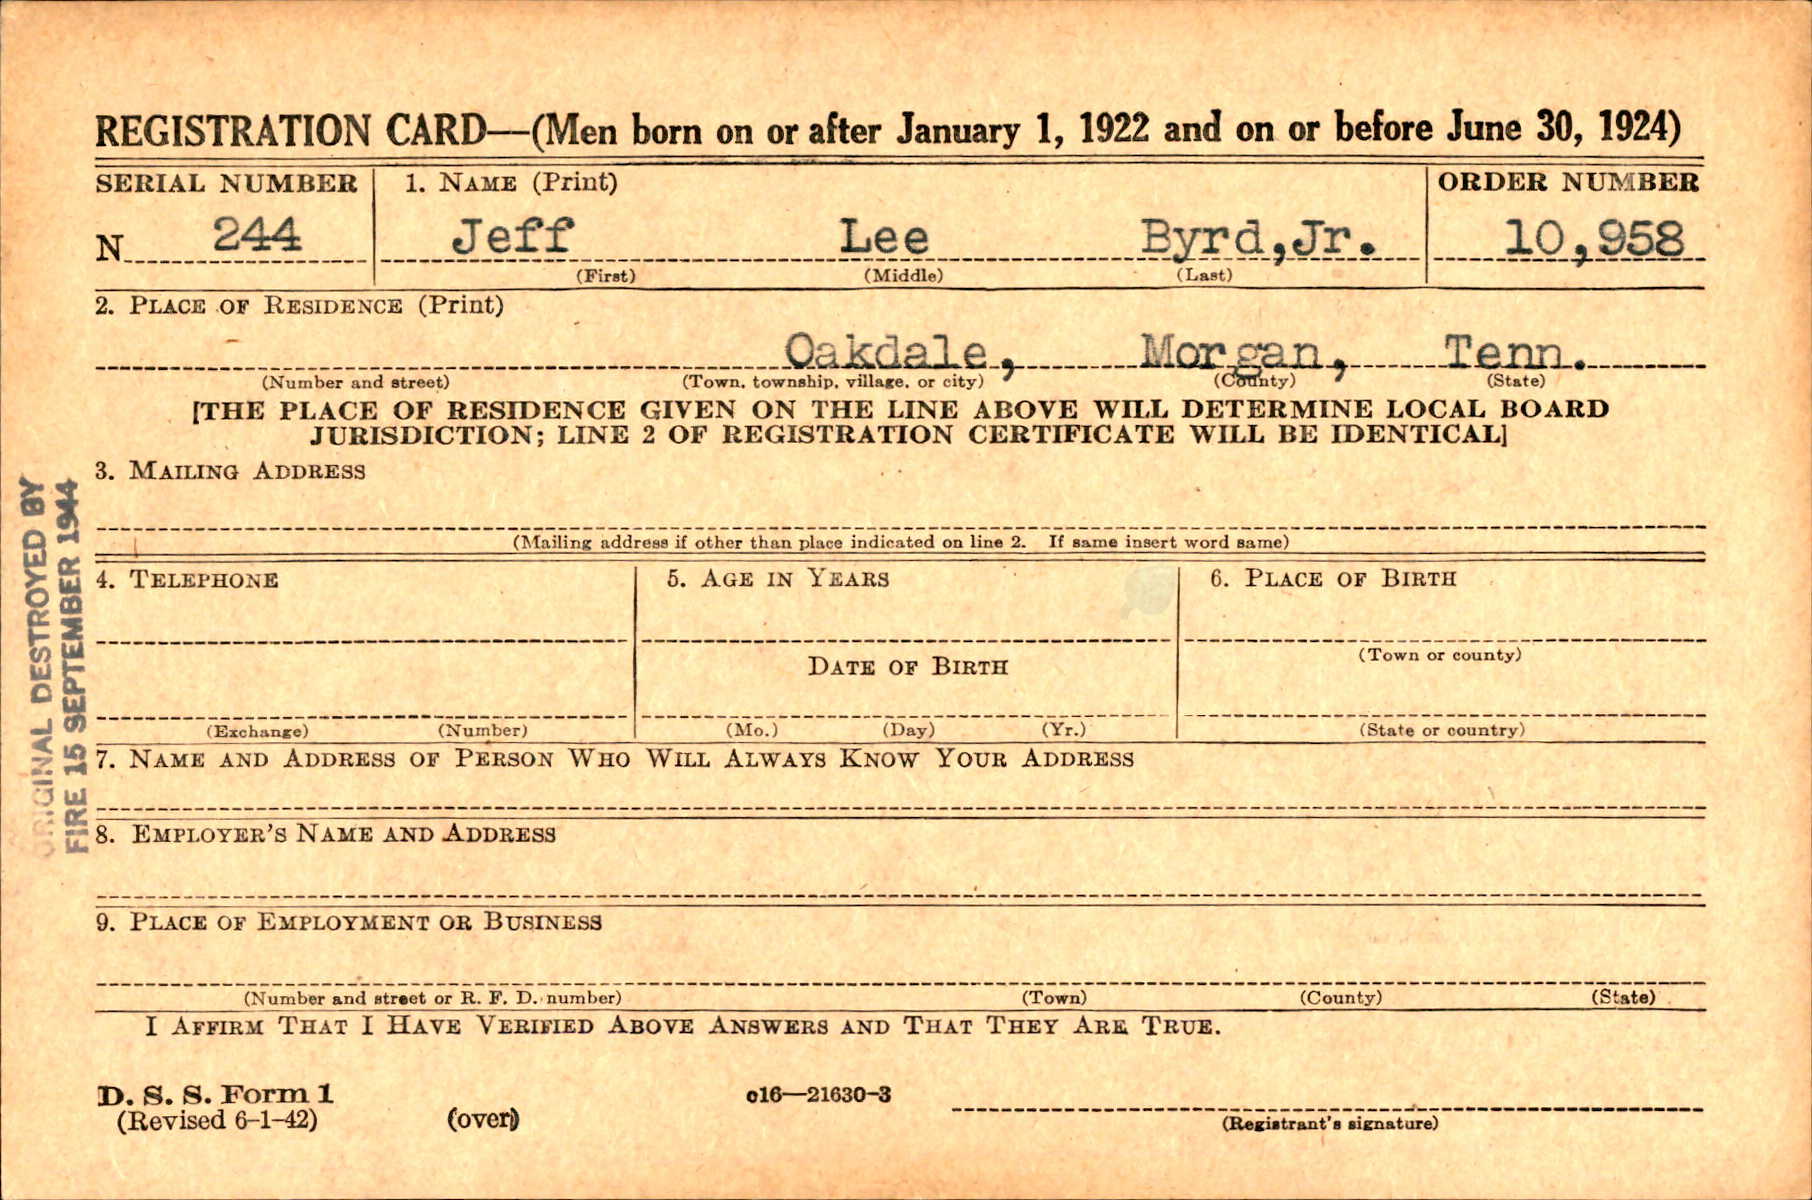 REGISTRATION CARD—(Men born on or after January 1, 1922 and on or before June 30, 1924)
SERIAL NUMBER 1. NAME (Print) ORDER NUMBER
N 244 Jeff Lee Byrd,Jr. 10,958
(First) (Middle) (Last)
2. PLACE OF RESIDENCE (Print)
Oakdale, Morgan, Tenn.
(Number and street) (Town, township, village, or city) (County) (State)
[THE PLACE OF RESIDENCE GIVEN ON THE LINE ABOVE WILL DETERMINE LOCAL BOARD
JURISDICTION; LINE 2 OF REGISTRATION CERTIFICATE WILL BE IDENTICAL]
3. MAILING ADDRESS
(Mailing address if other than place indicated on line 2. If same insert word same)
4. TELEPHONE 5. AGE IN YEARS 6. PLACE OF BIRTH
(Town or county)
DATE OF BIRTH
(Exchange) (Number) (Mo.) (Day) (Yr.) (State or country)
7. NAME AND ADDRESS OF PERSON WHO WILL ALWAYS KNOW YOUR ADDRESS
8. EMPLOYER'S NAME AND ADDRESS
9. PLACE OF EMPLOYMENT OR BUSINESS
(Number and street or R. F. D. number) (Town) (County) (State)
I AFFIRM THAT I HAVE VERIFIED ABOVE ANSWERS AND THAT THEY ARE TRUE.
D. S. S. Form 1
(Revised 6-1-42) (over) c16—21630-3
(Registrant's signature)
ORIGINAL DESTROYED BY
FIRE 15 SEPTEMBER 1944